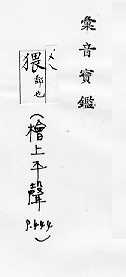 彙音寶鑑
猥 鄙也
(檜上平聲 P.444)